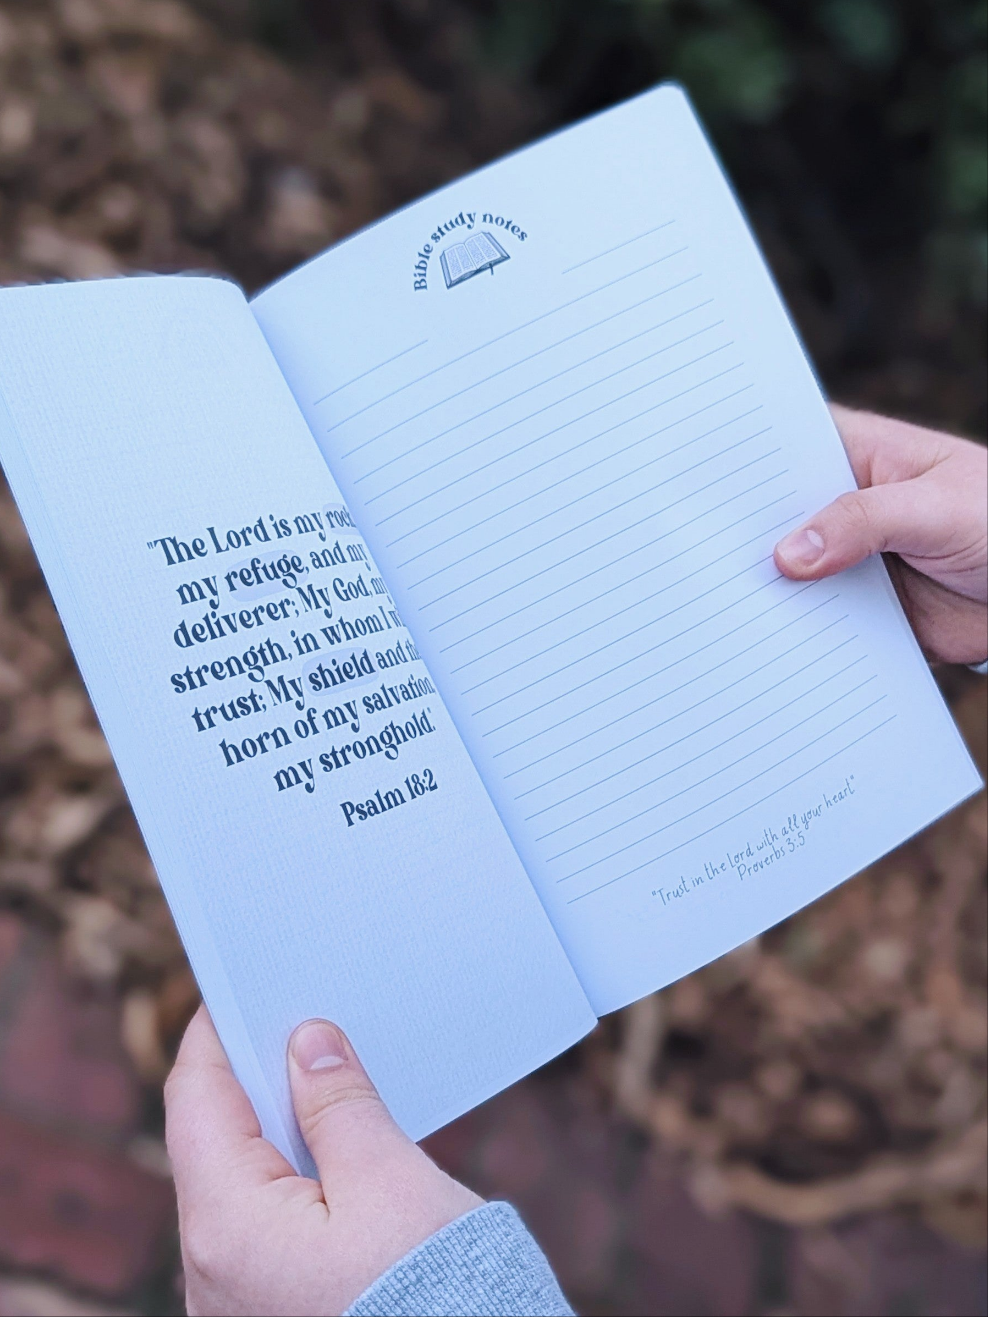 "The Lord is my rock,
my refuge, and my
deliverer; My God, my
strength, in whom I
trust; My shield and the
horn of my salvation,
my stronghold."
Psalm 18:2
Bible study notes
"Trust in the Lord with all your heart"
Proverbs 3:5